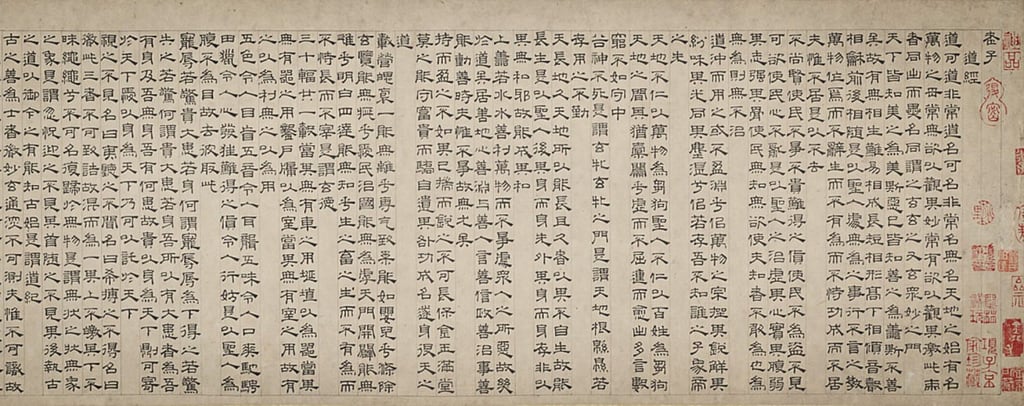 老子
道經
道可道非常道名可名非常名無名天地之始有名
萬物之母常無欲以觀其妙常有欲以觀其徼此兩
者同出而異名同謂之玄玄之又玄衆妙之門
天下皆知美之為美斯惡已皆知善之為善斯不善
矣故有無相生難易相成長短相形高下相傾音聲
相和前後相隨是以聖人處無為之事行不言之教
萬物作焉而不辭生而不有為而不恃功成而不居
夫惟不居是以不去
不尚賢使民不爭不貴難得之貨使民不為盜不見
可欲使心不亂是以聖人之治虛其心實其腹弱
其志強其骨常使民無知無欲使夫知者不敢為也為
無為則無不治
道沖而用之或不盈淵乎似萬物之宗挫其銳解其
紛和其光同其塵湛兮似若存吾不知誰之子象帝
之先
天地不仁以萬物為芻狗聖人不仁以百姓為芻狗
天地之間其猶橐籥乎虛而不屈動而愈出多言數
窮不如守中
谷神不死是謂玄牝玄牝之門是謂天地根緜緜若
存用之不勤
天長地久天地所以能長且久者以其不自生故能
長生是以聖人後其身而身先外其身而身存非以
其無私邪故能成其私
上善若水水善利萬物而不爭處衆人之所惡故幾
於道矣居善地心善淵與善人言善信政善治事善
能動善時夫惟不爭故無尤矣
持而盈之不如其已揣而銳之不可長保金玉滿堂
莫之能守富貴而驕自遺其咎功成名遂身退天之
道
載營魄褱一能無離乎專氣致柔能如嬰兒乎滌除
玄覽能無疵乎愛民治國能無為乎天門開闔能無
雌乎明白四達能無知乎生之畜之生而不有為而
不恃長而不宰是謂玄德
三十輻共一轂當其無有車之用埏埴以為器當其
無有器之用鑿戶牖以為室當其無有室之用故有
之以為利無之以為用
五色令人目盲五音令人耳聾五味令人口爽馳騁
田獵令人心發狂難得之貨令人行妨是以聖人為
腹不為目故去彼取此
寵辱若驚貴大患若身何謂寵辱辱為下得之若驚
失之若驚何謂貴大患若身吾所以有大患者為吾
有身及吾無身吾有何患故貴以身為天下則可寄
於天下愛以身為天下乃可以託於天下
視之不見名曰夷聽之不聞名曰希搏之不得名曰
微此三者不可致詰故混而為一其上不皦其下不
昧繩繩兮不可名復歸於無物是謂無狀之狀無象
之象是謂忽怳迎之不見其首隨之不見其後執古
之道以御今之有能知古始是謂道紀
古之善為士者微妙玄通深不可測夫惟不可識故